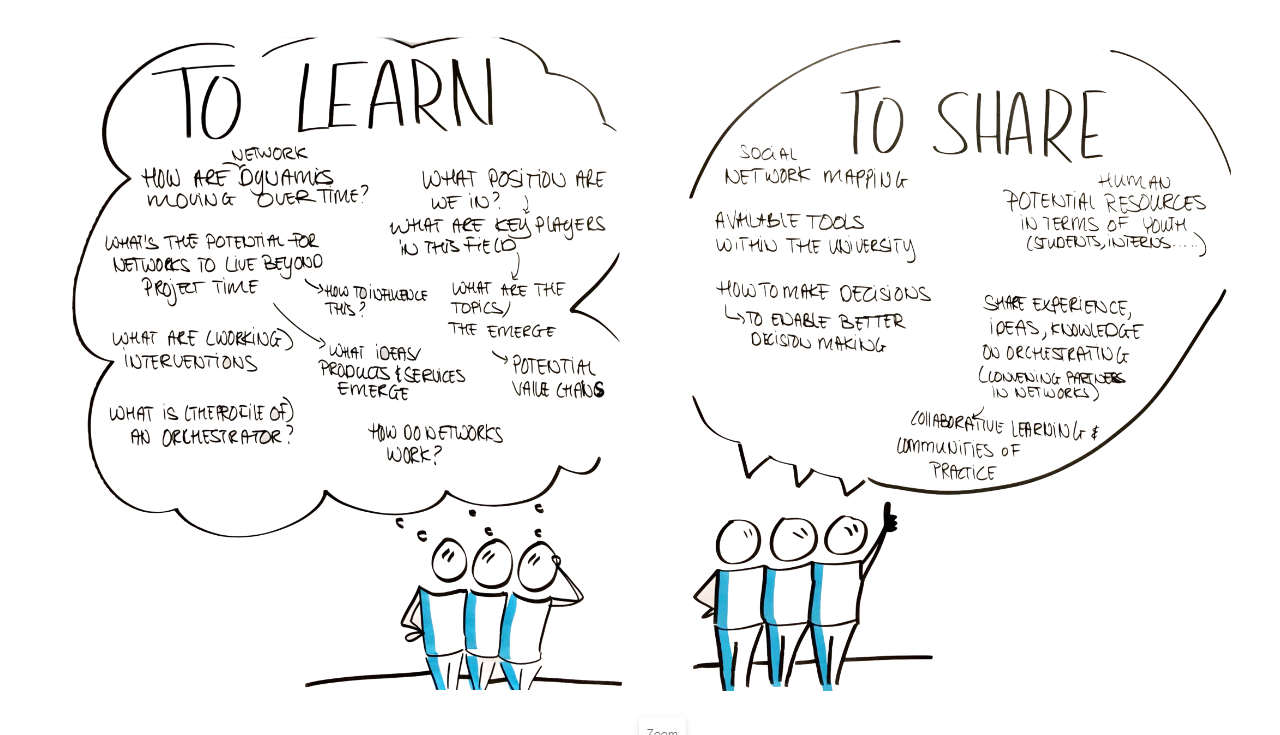 TO LEARN
NETWORK
HOW ARE DYNAMIS
MOVING OVER TIME?
WHAT'S THE POTENTIAL FOR
NETWORKS TO LIVE BEYOND
PROJECT TIME
HOW TO INFLUENCE
THIS?
WHAT ARE (WORKING)
INTERVENTIONS
WHAT IDEAS/
PRODUCTS & SERVICES
EMERGE
WHAT IS (THE PROFILE OF)
AN ORCHESTRATOR?
HOW DO NETWORKS
WORK?
WHAT POSITION ARE
WE IN?
WHAT ARE KEY PLAYERS
IN THIS FIELD
WHAT ARE THE
TOPICS/
THE EMERGE
POTENTIAL
VALUE CHAINS
TO SHARE
SOCIAL
NETWORK MAPPING
AVAILABLE TOOLS
WITHIN THE UNIVERSITY
HOW TO MAKE DECISIONS
TO ENABLE BETTER
DECISION MAKING
HUMAN
POTENTIAL RESOURCES
IN TERMS OF YOUTH
(STUDENTS, INTERNS.....)
SHARE EXPERIENCE,
IDEAS, KNOWLEDGE
ON ORCHESTRATING
(CONVENING PARTNERS
IN NETWORKS)
COLLABORATIVE LEARNING &
COMMUNITIES OF
PRACTICE
Zoom